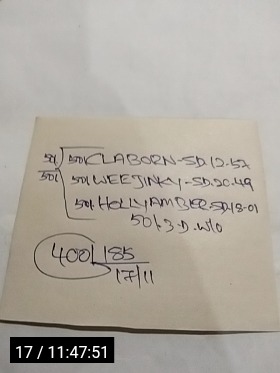 50/ 50/ CLABORN-SD.12-52
50/ 50/ WEEJINKY-SD.20.49
50/ HOLLYAMBER-SD.18-01
50/.3-D.W/O
400 185
17/11
17 / 11:47:51